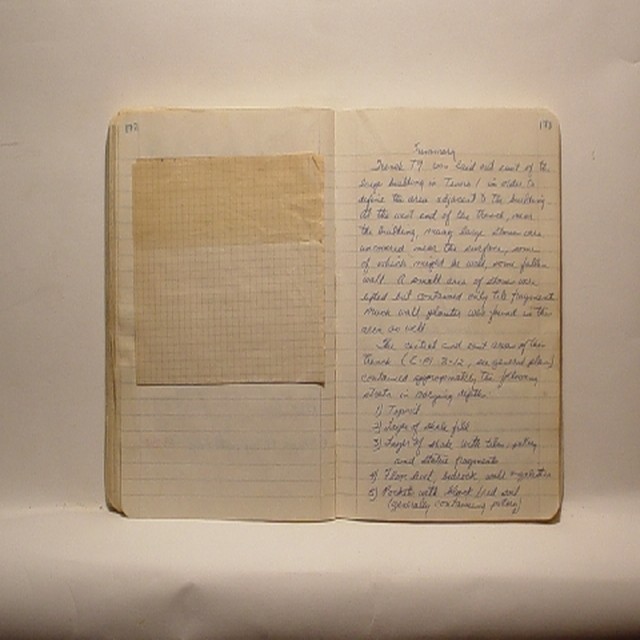 172
173
Summary
Trench T9 was laid out east of the
large building in Terrace 1 in order to
define the area adjacent to the building.
At the west end of the trench, near
the building, many large stones were
uncovered near the surface, some
of which might be wall, some fallen
wall. A small area of stones were
lifted but contained only tile fragments.
Much wall plaster was found in this
area as well.
The central and east areas of the
trench ( 12, see general plan)
contained approximately the following
strata in varying depths.
1) Topsoil
2) Layer of shale fill
3) Layer of shale with tiles, pottery
and statue fragments
4) Floor level, bedrock with
5) Pockets with black/red soil
(generally containing pottery)